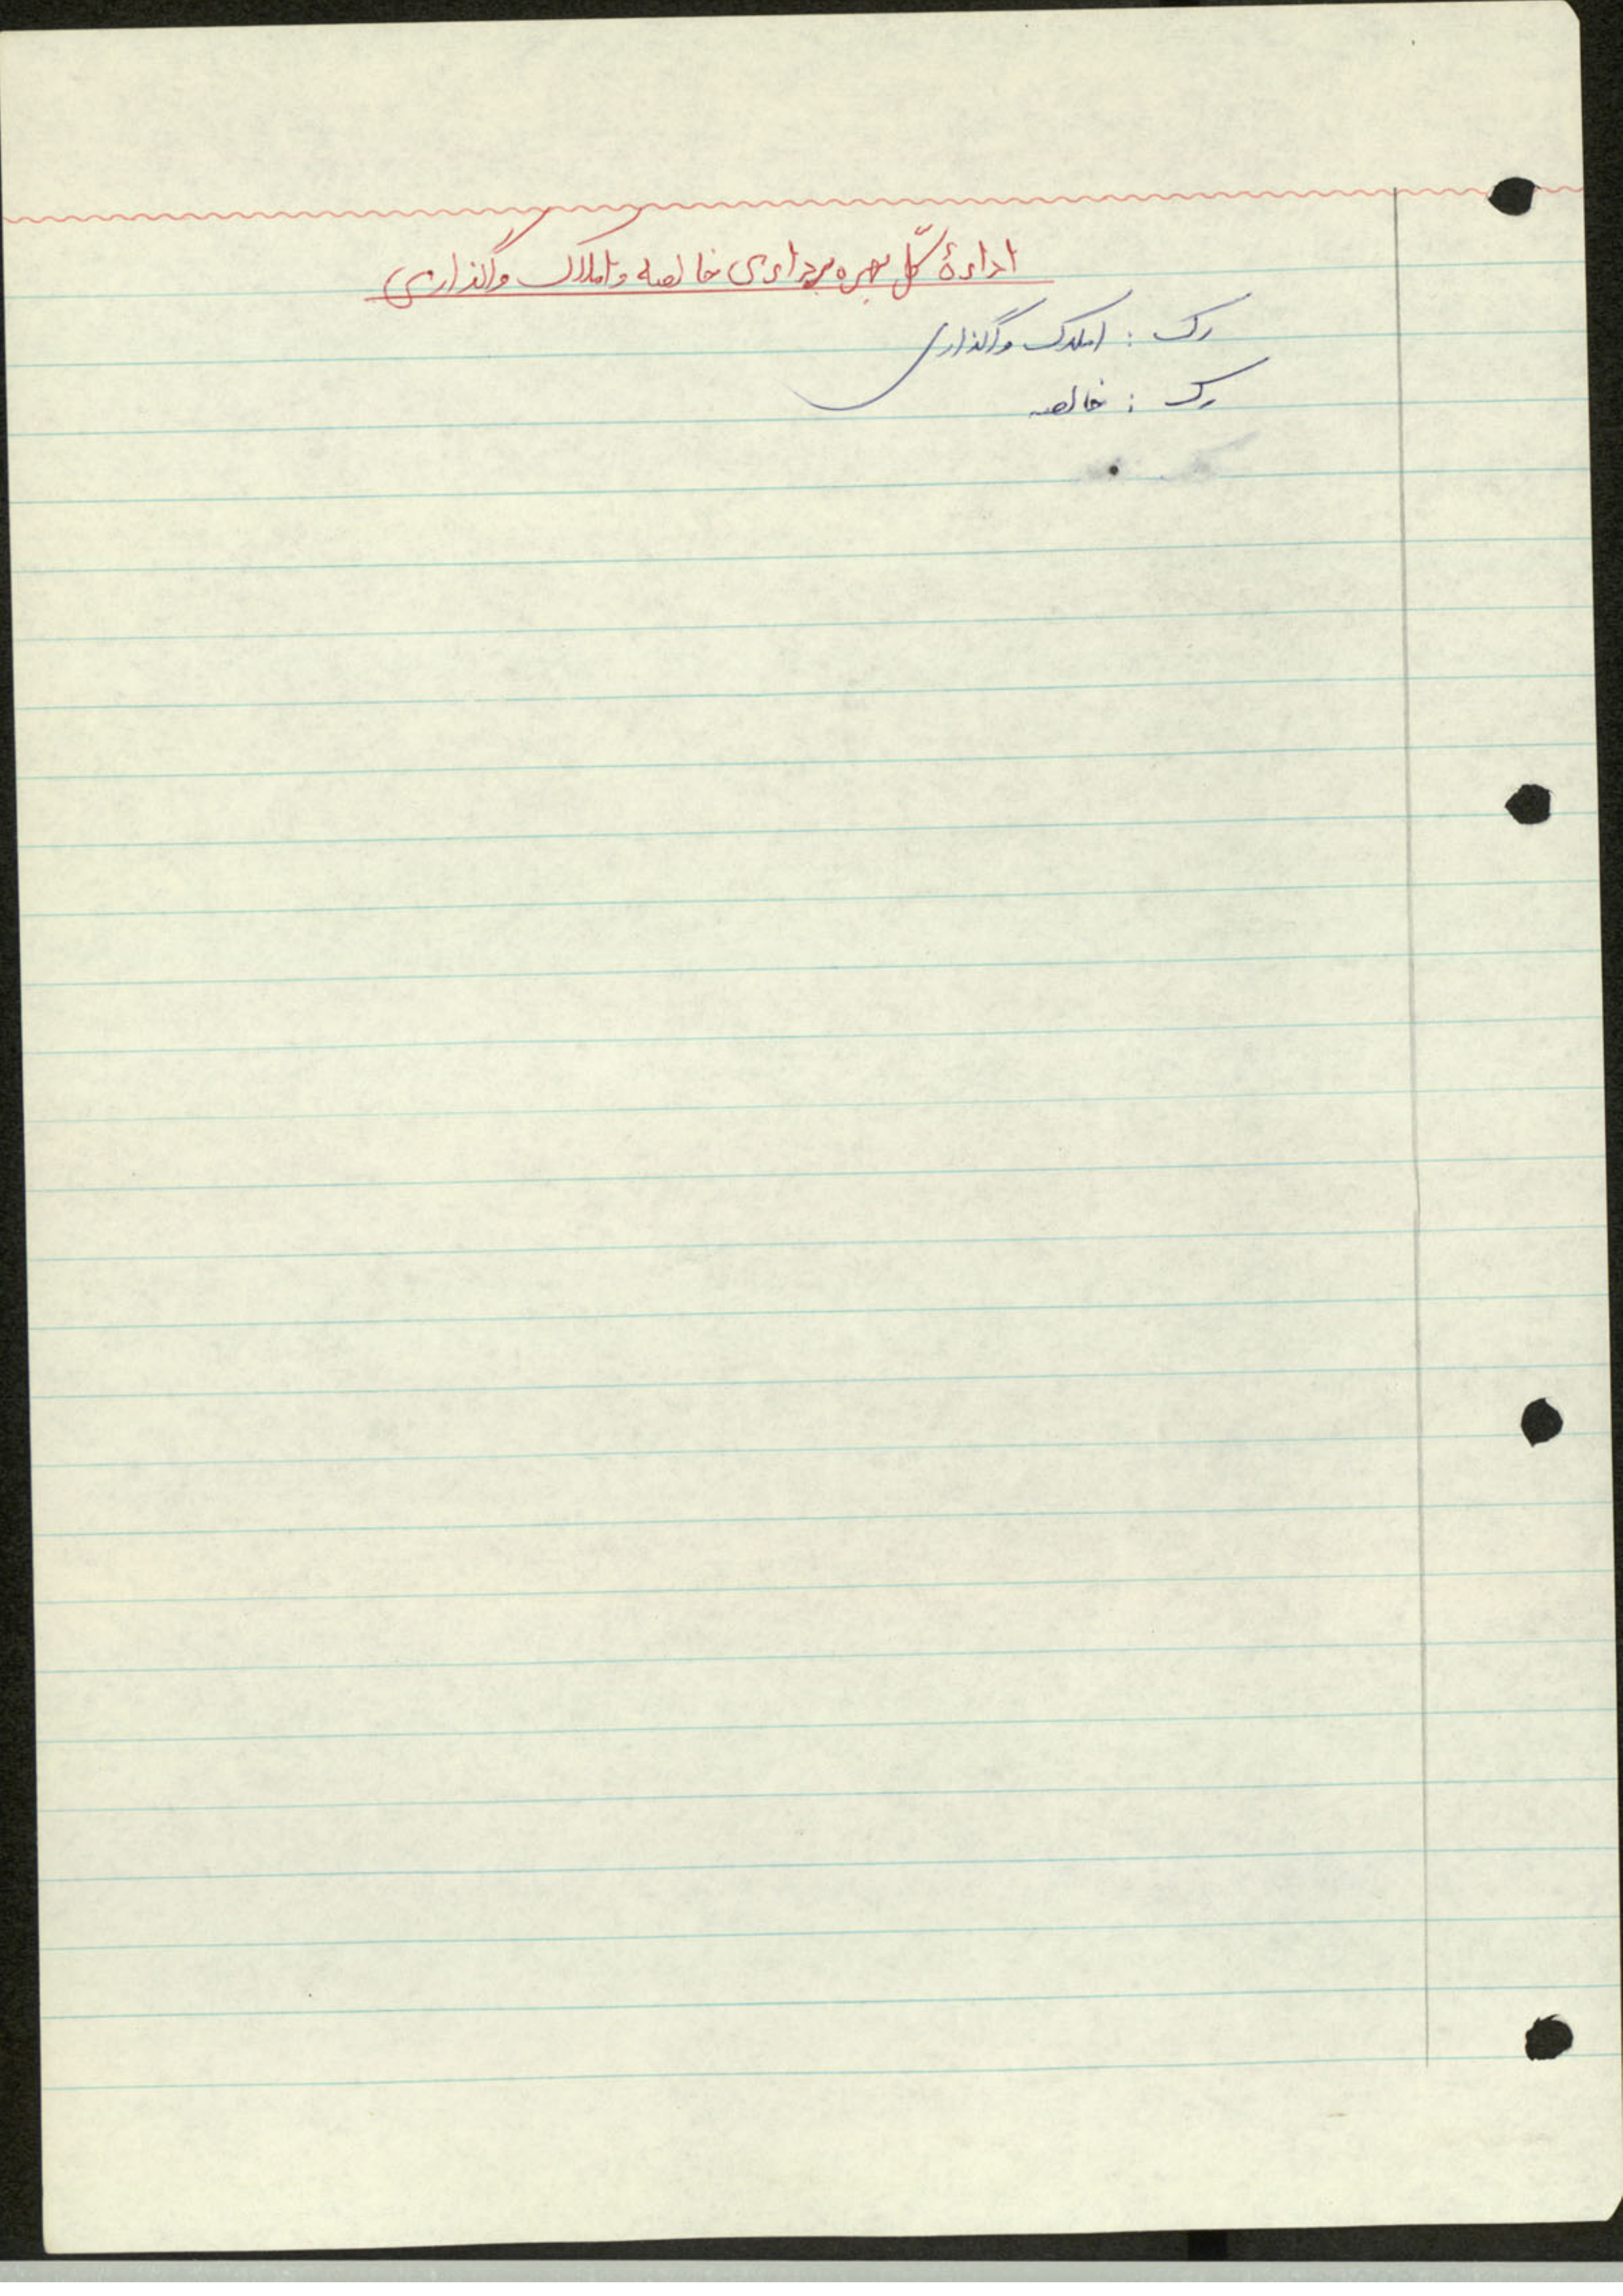 ادارهٔ کلّ بهره‌برداری خالصه و املاک واگذاری
رک : املاک واگذاری
رک : خالصه